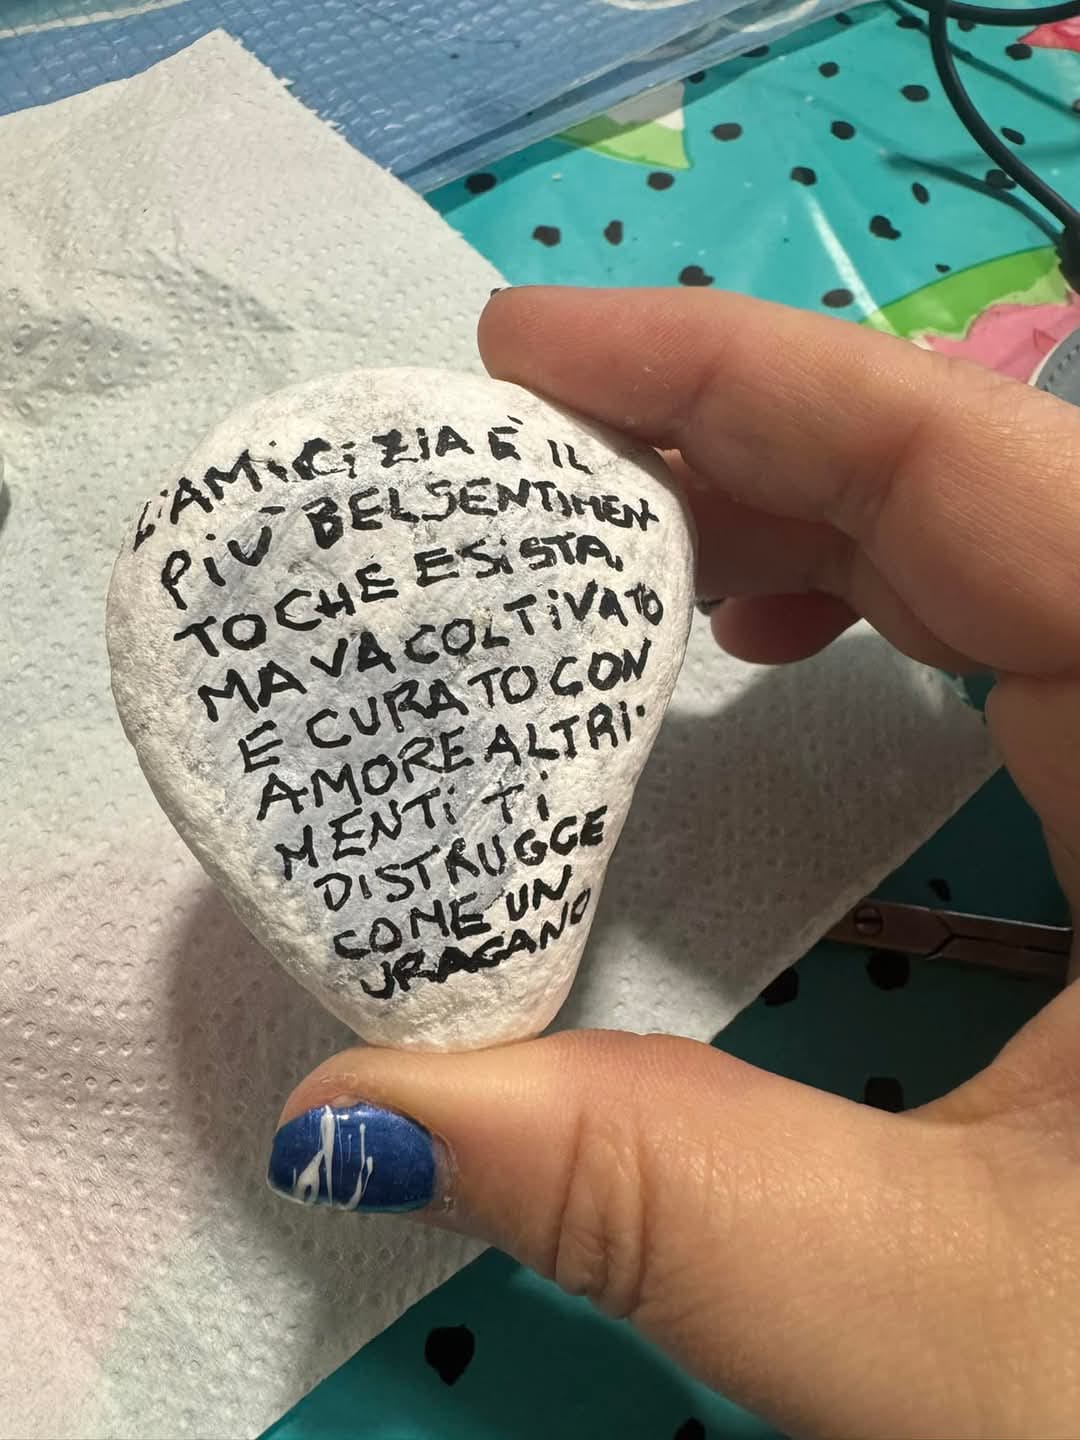 L'AMiCiZiA È IL
PiÙ BELSENTIMEN
TO CHE ESiSTA.
MA VA COLTiVATO
E CURATO CON
AMORE ALTRi-
MENTi Ti
DiSTRUGGE
COME UN
URAGANO